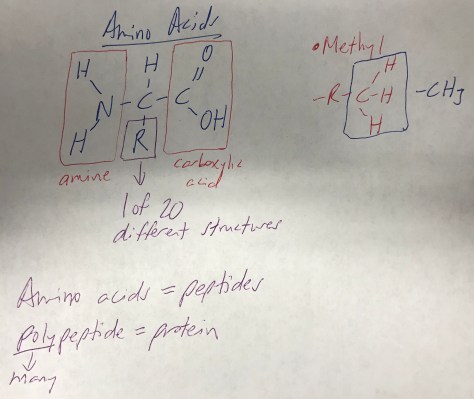 Amino Acids
H H O
N - C - C
H R OH
amine carboxylic acid
1 of 20
different structures
• Methyl
H
-R-C-H -CH3
H
Amino acids = peptides
polypeptide = protein
many